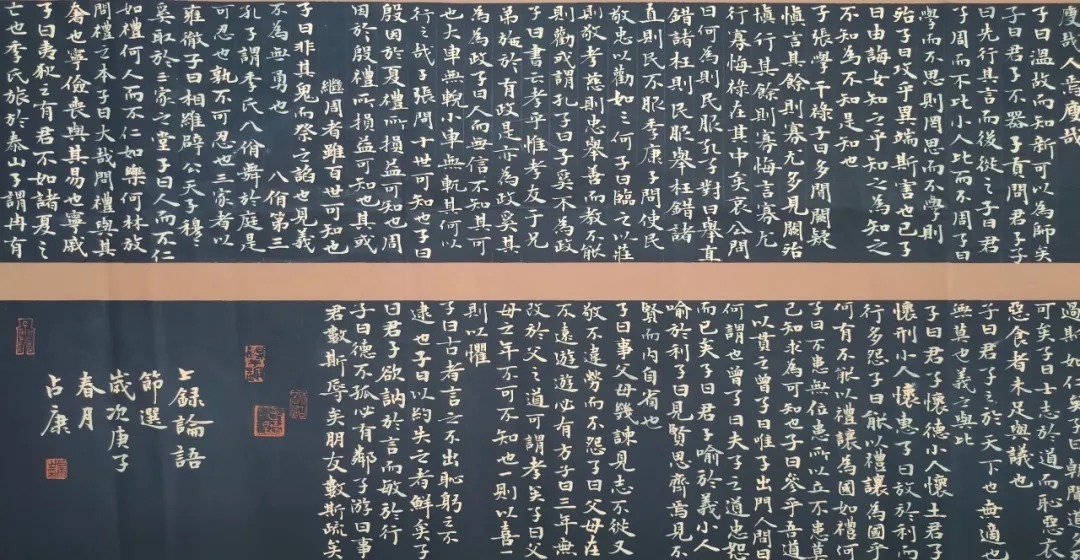 廋哉人焉廋哉
子曰溫故而知新可以為師矣
子曰君子不器子貢問君子子
曰先行其言而後從之子曰君
子周而不比小人比而不周子曰
學而不思則罔思而不學則
殆子曰攻乎異端斯害也已子
曰由誨女知之乎知之為知之
不知為不知是知也
子張學干祿子曰多聞闕疑
慎言其餘則寡尤多見闕殆
慎行其餘則寡悔言寡尤
行寡悔祿在其中矣哀公問
曰何為則民服孔子對曰舉直
錯諸枉則民服舉枉錯諸
直則民不服季康子問使民
敬忠以勸如之何子曰臨之以莊
則敬孝慈則忠舉善而教不能
則勸或謂孔子曰子奚不為政
子曰書云孝乎惟孝友于兄
弟施於有政是亦為政奚其
為為政子曰人而無信不知其可
也大車無輗小車無軏其何以
行之哉子張問十世可知也子曰
殷因於夏禮所損益可知也周
因於殷禮所損益可知也其或
繼周者雖百世可知也
子曰非其鬼而祭之諂也見義
不為無勇也 八佾第三
孔子謂季氏八佾舞於庭是
可忍也孰不可忍也三家者以
雍徹子曰相維辟公天子穆々
奚取於三家之堂子曰人而不仁
如禮何人而不仁如樂何林放
問禮之本子曰大哉問禮與其
奢也寧儉喪與其易也寧戚
子曰夷狄之有君不如諸夏之
亡也季氏旅於泰山子謂冉有
過斯知仁矣子曰朝聞道夕
可矣子曰士志於道而恥惡衣
惡食者未足與議也
子曰君子之於天下也無適
無莫也義之與比
子曰君子懷德小人懷土君子
懷刑小人懷惠子曰放於利
行多怨子曰能以禮讓為國
何有不能以禮讓為國如禮何
子曰不患無位患所以立不患莫
己知求為可知也子曰參乎吾道
一以貫之曾子曰唯子出門人問曰
何謂也曾子曰夫子之道忠恕
而已矣子曰君子喻於義小人
喻於利子曰見賢思齊焉見不
賢而內自省也
子曰事父母幾諫見志不從又
敬不違勞而不怨子曰父母在
不遠遊遊必有方子曰三年無
改於父之道可謂孝矣子曰父
母之年不可不知也一則以喜一
則以懼
子曰古者言之不出恥躬之不
逮也子曰以約失之者鮮矣子
曰君子欲訥於言而敏於行
子曰德不孤必有鄰子游曰事
君數斯辱矣朋友數斯疏矣
上錄論語
節選
歲次庚子
春月
占康